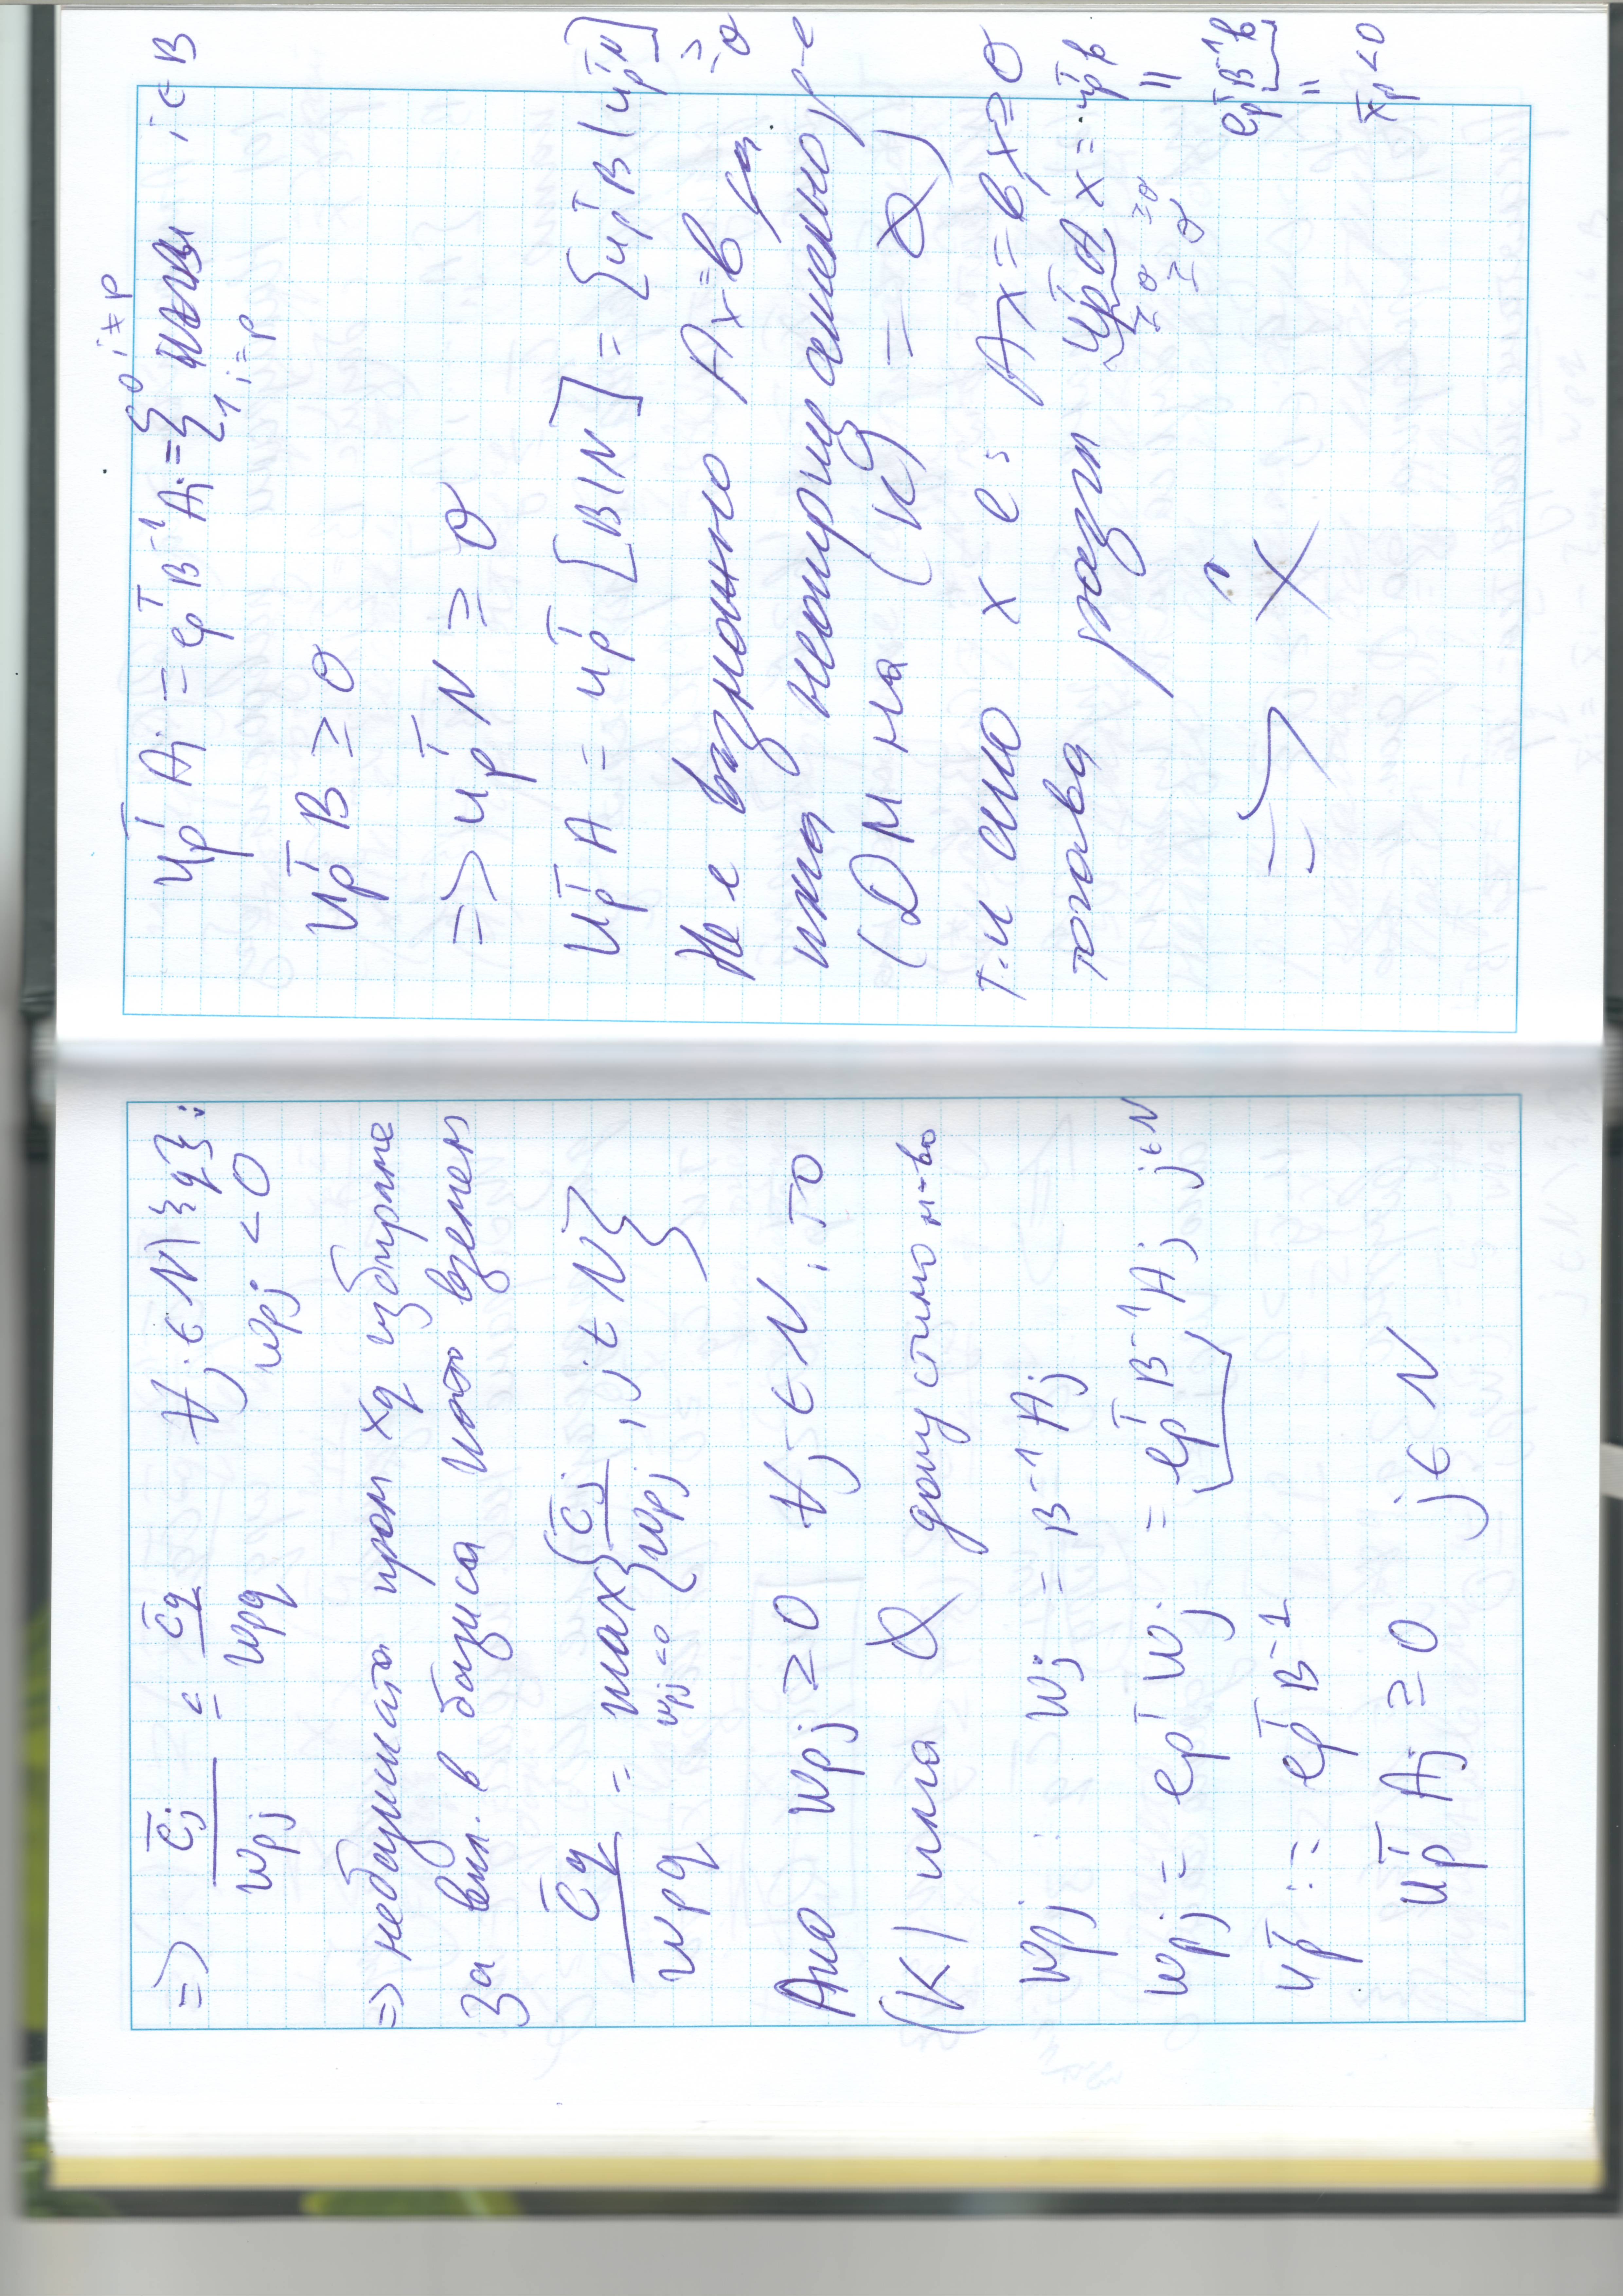 => c̄j / wpj ≤ c̄q / wpq ∀j ∈ N \ {q}:
wpj < 0
=> небазисната пром xq избираме
за вкл. в базиса като вземем
c̄q / wpq = max { c̄j / wpj , j ∈ N }
wpj < 0
Ако wpj ≥ 0 ∀j ∈ N, то
(K) има ∅ допустимо м-во
wpj wj = B⁻¹Aj
wpj = epᵀ wj = epᵀ B⁻¹ Aj, j ∈ N
upᵀ := epᵀ B⁻¹
upᵀ Aj ≥ 0 j ∈ N
upᵀ Ai = epᵀ B⁻¹ Ai = { 0 i ≠ p i ∈ B
1 i = p
upᵀ B ≥ 0
=> upᵀ N ≥ 0
upᵀ A = upᵀ [B | N] = [upᵀ B | upᵀ N]
≥ 0
Не е възможно Ax = b да
има неотрицателно р-е
(DM на (K) = ∅)
т.к ако x е: Ax = b, x ≥ 0
тогава upᵀ A x = upᵀ b
≥ 0 ≥ 0
≥ 0
=
epᵀ B⁻¹ b
=
x̄p < 0
=> X